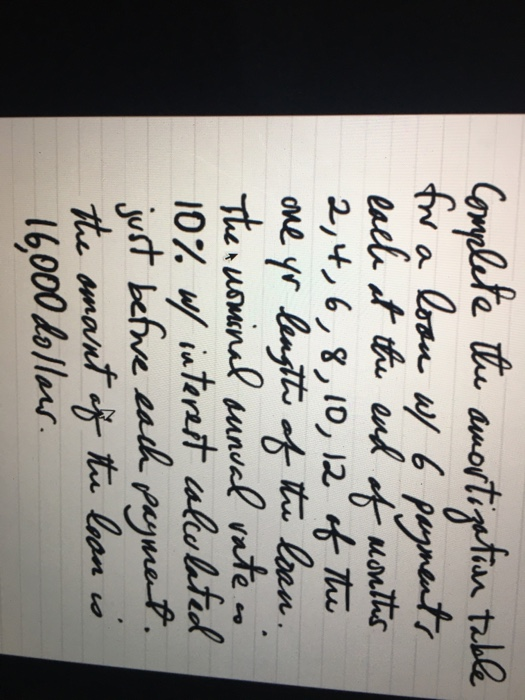 Complete the amortization table
for a loan w/ 6 payments
each at the end of months
2, 4, 6, 8, 10, 12 of the
one yr length of the loan.
The nominal annual rate is
10% w/ interest calculated
just before each payment.
The amount of the loan is
16,000 dollars.